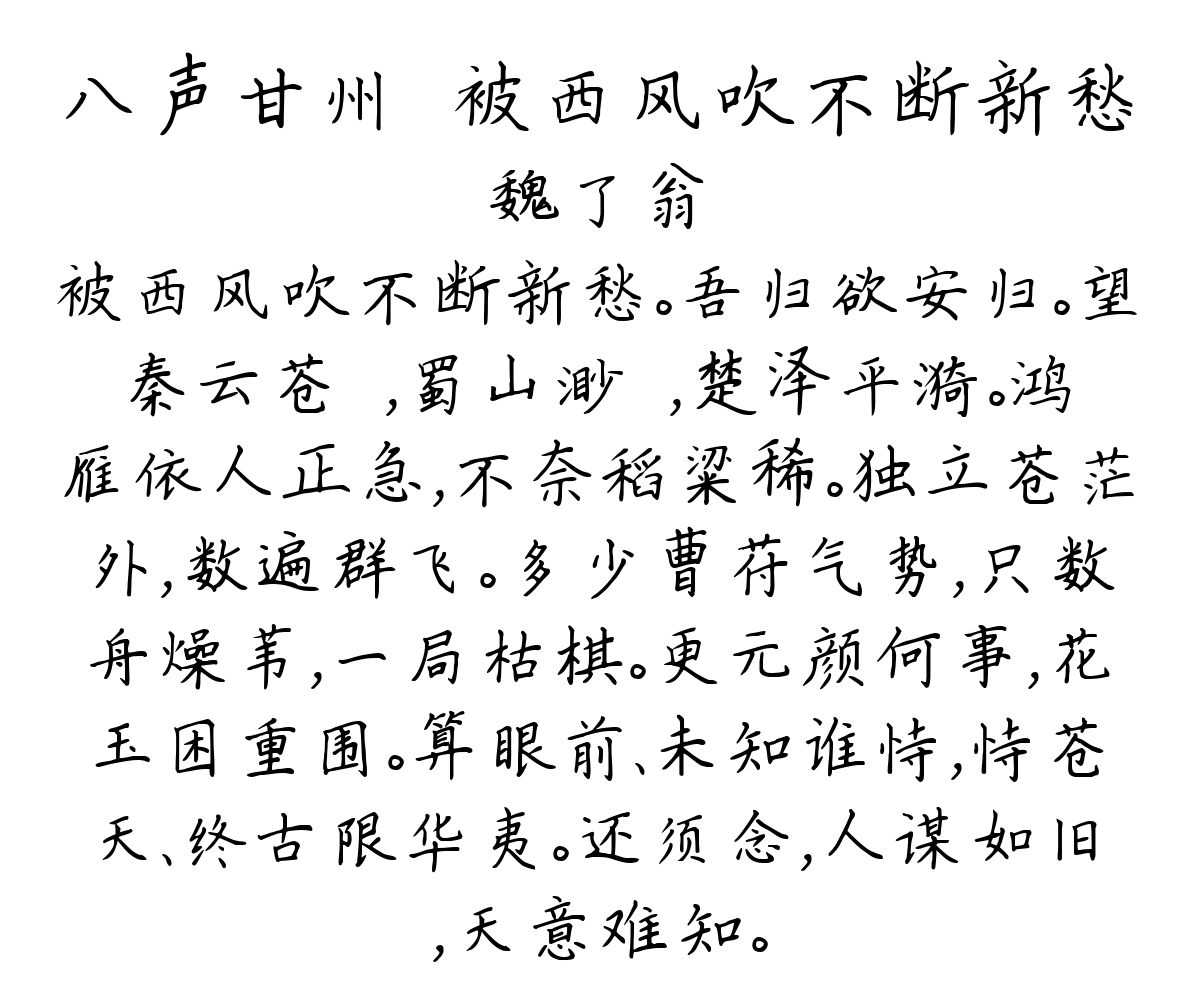 八声甘州 被西风吹不断新愁
魏了翁
被西风吹不断新愁。吾归欲安归。望
秦云苍 ,蜀山渺 ,楚泽平漪。鸿
雁依人正急,不奈稻粱稀。独立苍茫
外,数遍群飞。多少曹苻气势,只数
舟燥苇,一局枯棋。更元颜何事,花
玉困重围。算眼前、未知谁恃,恃苍
天、终古限华夷。还须念,人谋如旧
,天意难知。